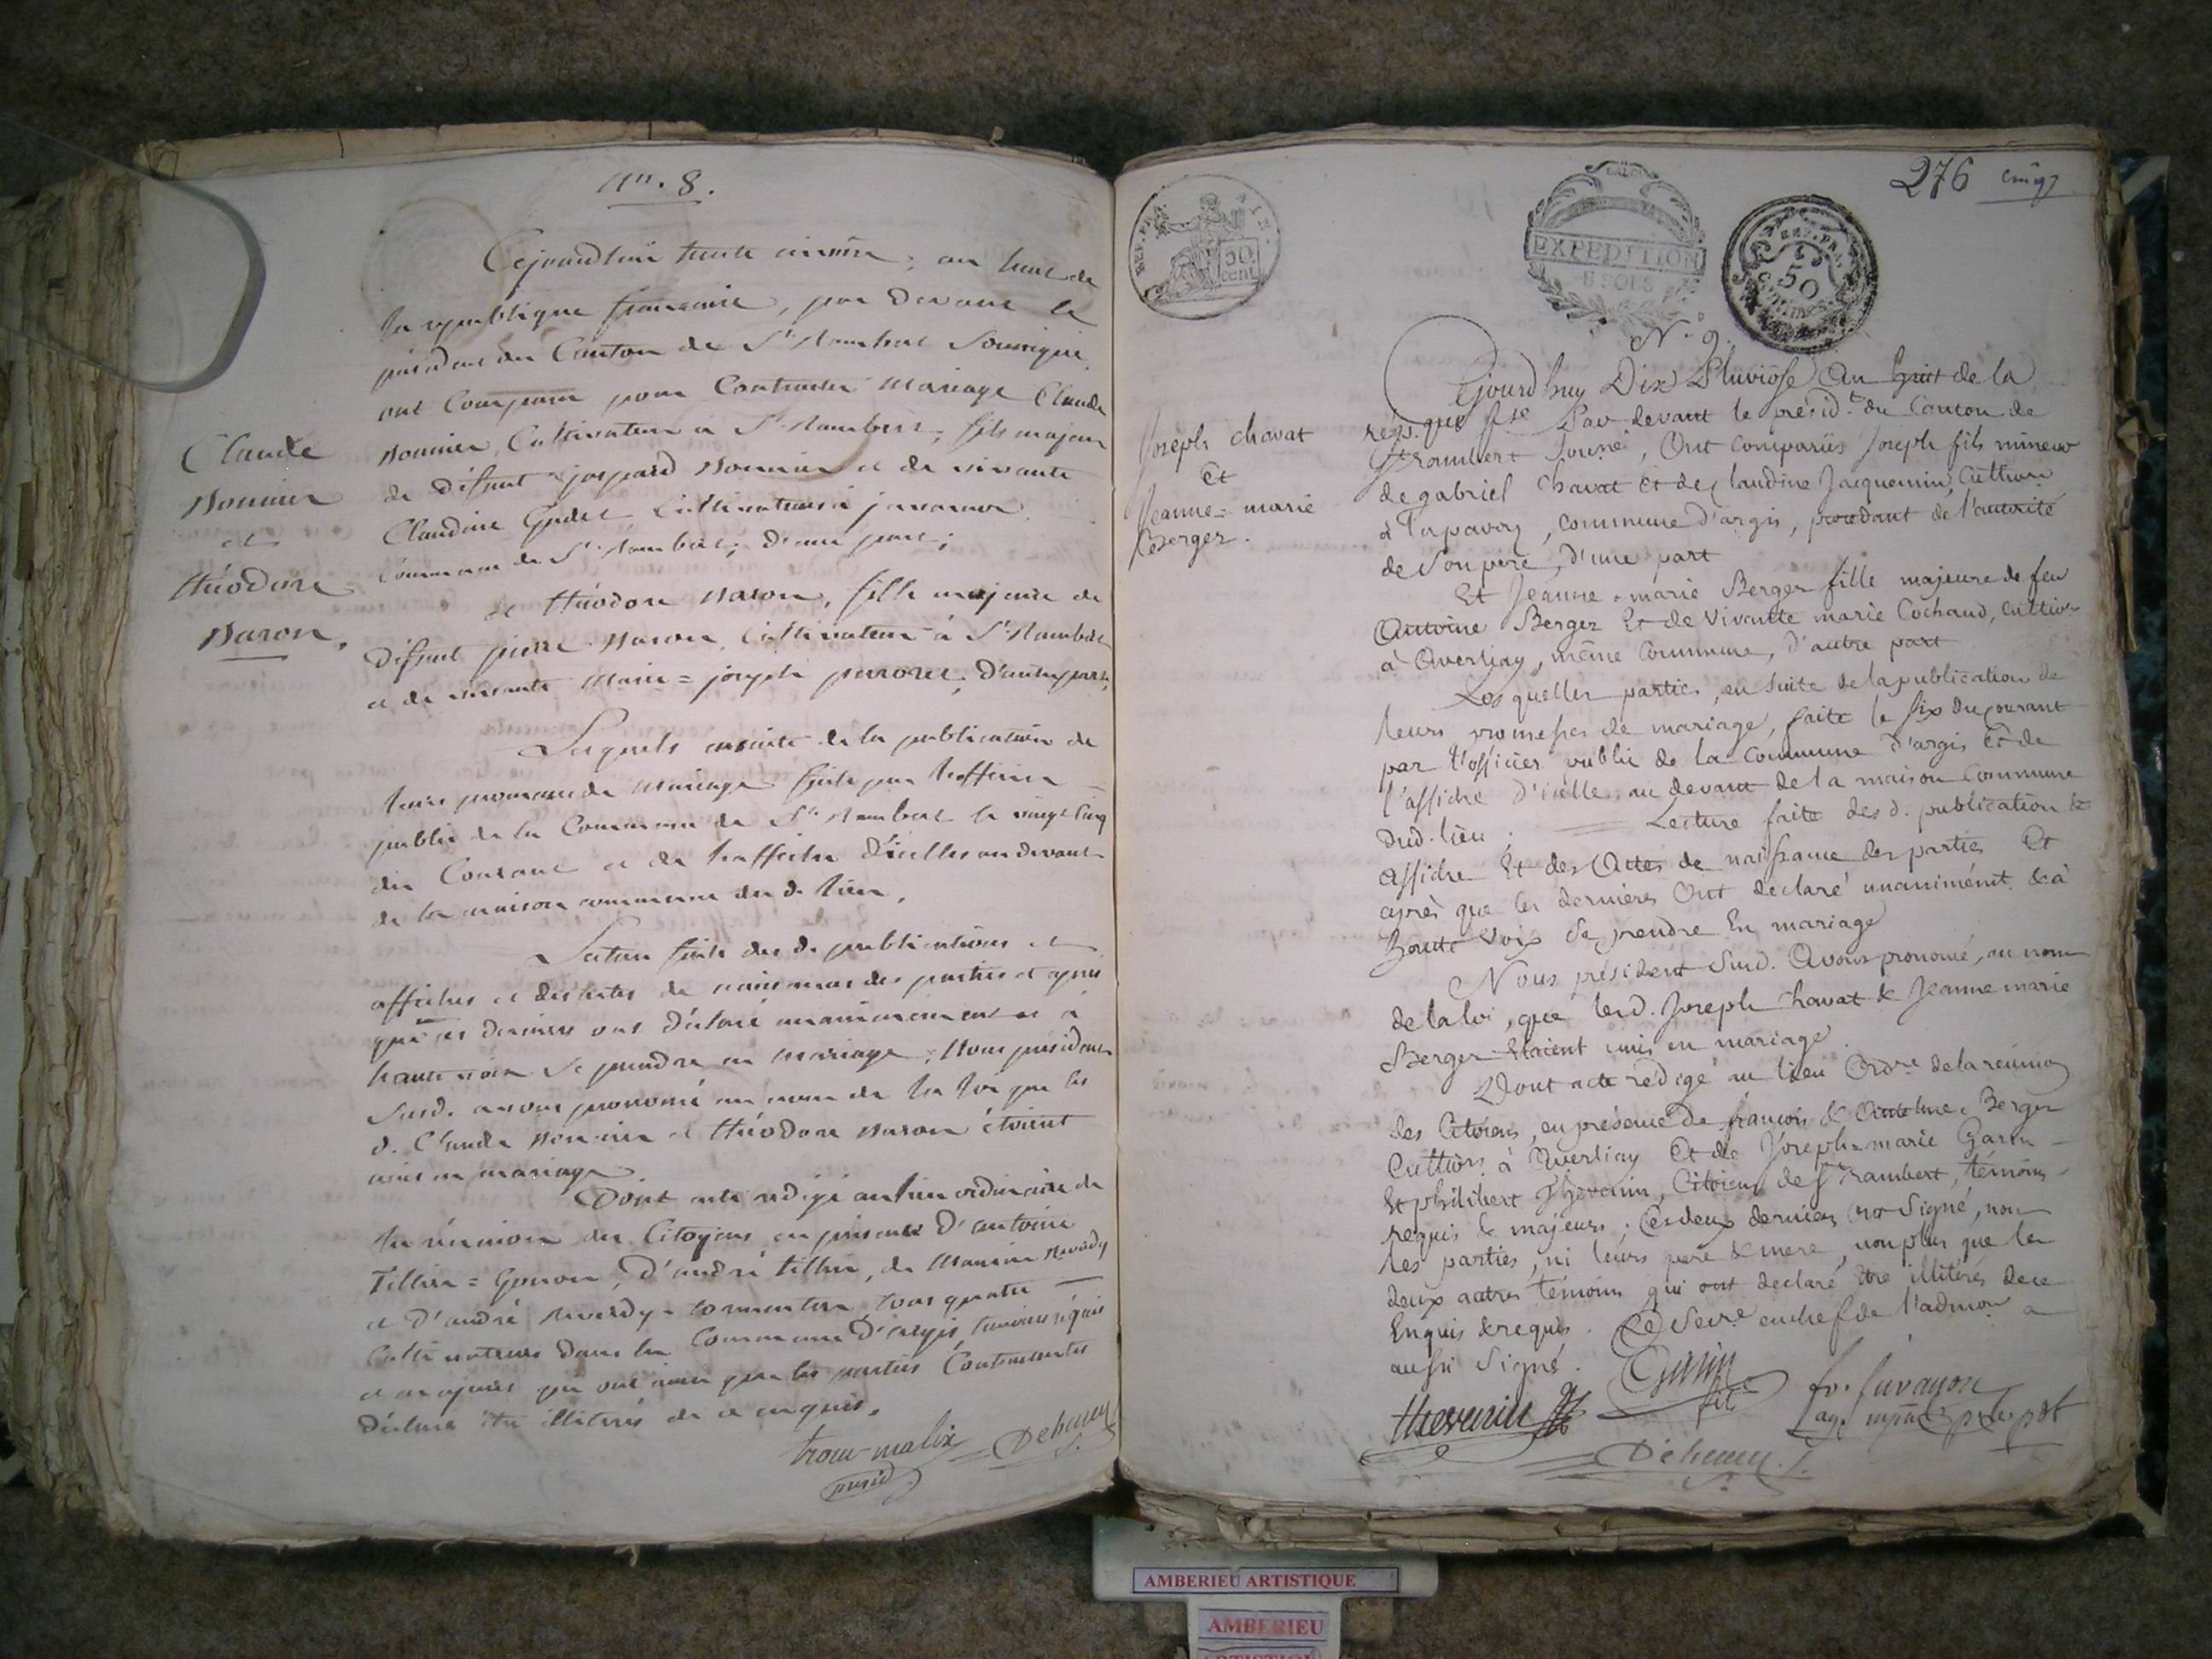 N°. 8.
Claude
Bonnier
et
théodore
Baron.
Cejourdhui trente nivôse, an huit de
la republique francaise, par devant le
président du Canton de St Rambert Soussigné
ont Comparu pour Contracter Mariage Claude
Bonnier, Cultivateur à St Rambert, fils majeur
de défunt gaspard Bonnier et de vivante
Claudine Godet Cultivateurs à
Commune de St Rambert, d'une part;
et théodore Baron, fille majeure de
défunt pierre Baron Cultivateur à St Rambert
et de vivante Marie = joseph d'autre part,
Lesquels ensuite de la publication de
leurs promesses de Mariage faite par l'officier
public de la Commune de St Rambert le vingt Cinq
du Courant et de l'affiche d'icelles au devant
de la maison commune du d. lieu.
Lecture faite des d. publications et
affiches et des actes de naissances des parties et après
que ces derniers ont déclaré unanimement et à
haute voix se prendre en Mariage, Nous président
Susd. avons prononcé au nom de la loi que les
d. Claude Bonnier et théodore Baron étoient
unis en mariage
Dont acte redigé au lieu ordinaire de
la réunion des Citoyens en présence d'antoine
Tillier = d'andré tillier, de
et d'andré tous quatre
Cultivateurs dans la Commune d'argis, temoins réquis
et majeurs qui ont ainsi que les parties Contractantes
déclaré être illiterés de ce enquis.
trocu-malix Dehuen
présid.
276 cinq
REP. FRA.
50
cent
EXPEDITION
8 SOUS
REP. FRA.
50
N°. 9.
Joseph chavat
et
Jeanne = marie
Berger.
Cejourd'huy Dix Pluviôse An huit de la
répque fse Par devant le présidt. du Canton de
St rambert Sousné, Ont comparüs Joseph fils mineur
de gabriel Chavat Et de Claudine Jacquemin, Cultivrs
à Tapavoz, commune d'argis, procedant de l'autorité
de Son pere, d'une part
Et Jeanne = marie Berger fille majeure de feu
Antoine Berger Et de Vivante marie Cochaud, cultivr
à Averliay, même Commune, d'autre part
Lesquelles parties, en suite de la publication de
leurs promesses de mariage, faite le six du courant
par l'officier public de la Commune d'argis Et de
l'affiche d'icelle, au devant de la maison Commune
Dud. lieu. = Lecture faite des d. publication &
affiche Et des Actes de naissance des parties Et
après que les dernieres Ont declaré unanimémt. & à
haute voix Se prendre En mariage
Nous président Susd. Avons prononcé, au nom
de la loi, que lesd. Joseph Chavat & Jeanne marie
Berger Etaient unis en mariage.
Dont acte rédigé au lieu Ordre. de la réunion
des Citoiens, en présence de françois & Antelme Berger
Cultivrs. à Averliay Et de Joseph = marie Garin
Et philibert Thevenin, Citoiens de St rambert, témoins
requis & majeurs; Ces deux derniers Ont Signé, non
les parties, ni leurs pere & mere, non plus que les
deux autres témoins qui ont declaré être illitérés de ce
Enquis & requis. Le Secre. en chef de l'admon a
aussi Signé.
Garin
fil
thevenin fr. Juvanon
ag. mpal pr le pdt
Dehuen. S.
AMBERIEU ARTISTIQUE
AMBERIEU
ARTISTIQUE